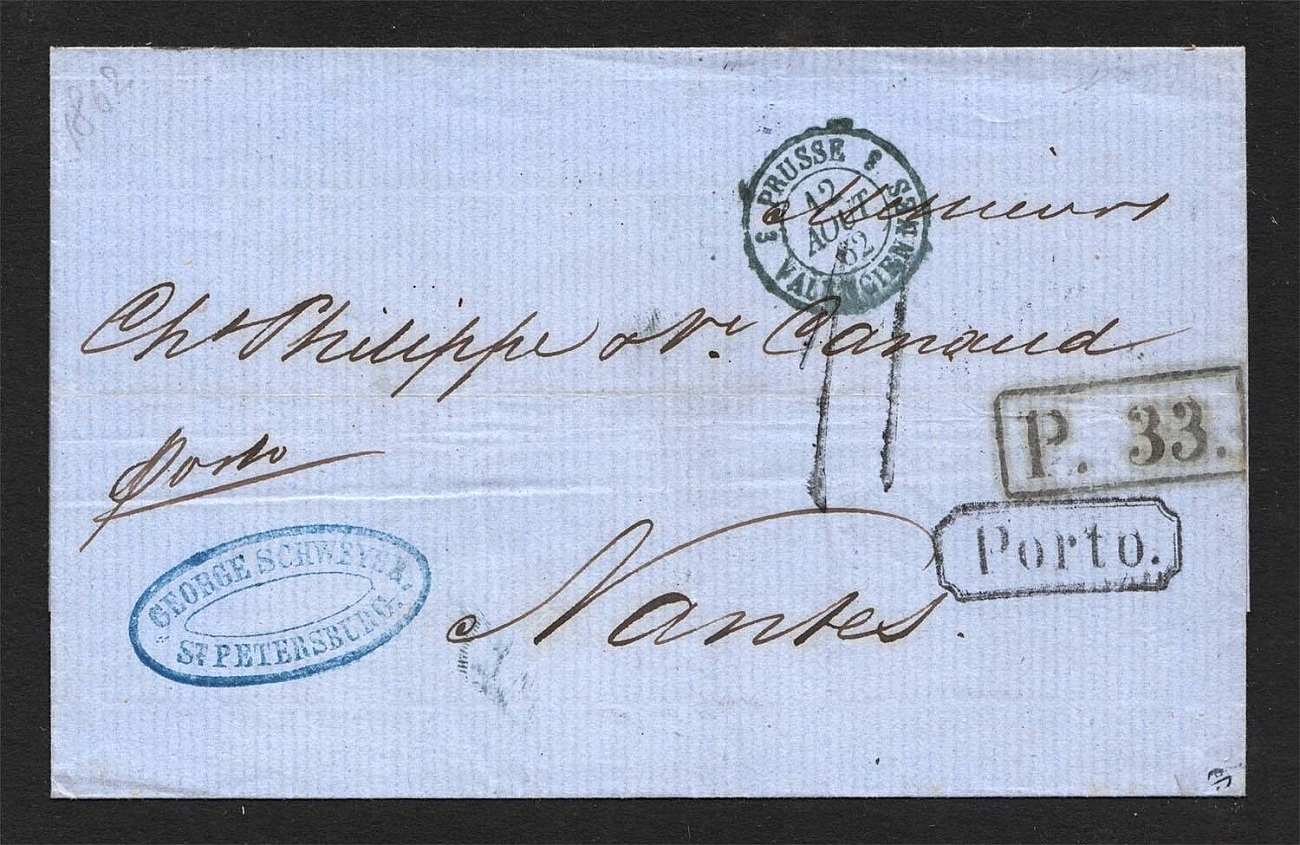 1862
3 PRUSSE 3 VALENCIENNES
12
AOUT
62
Messieurs
Chs Philippe & Ve. Canaud
P. 33.
Porto
11
Porto.
GEORGE SCHWEYER.
ST PETERSBURG.
Nantes.